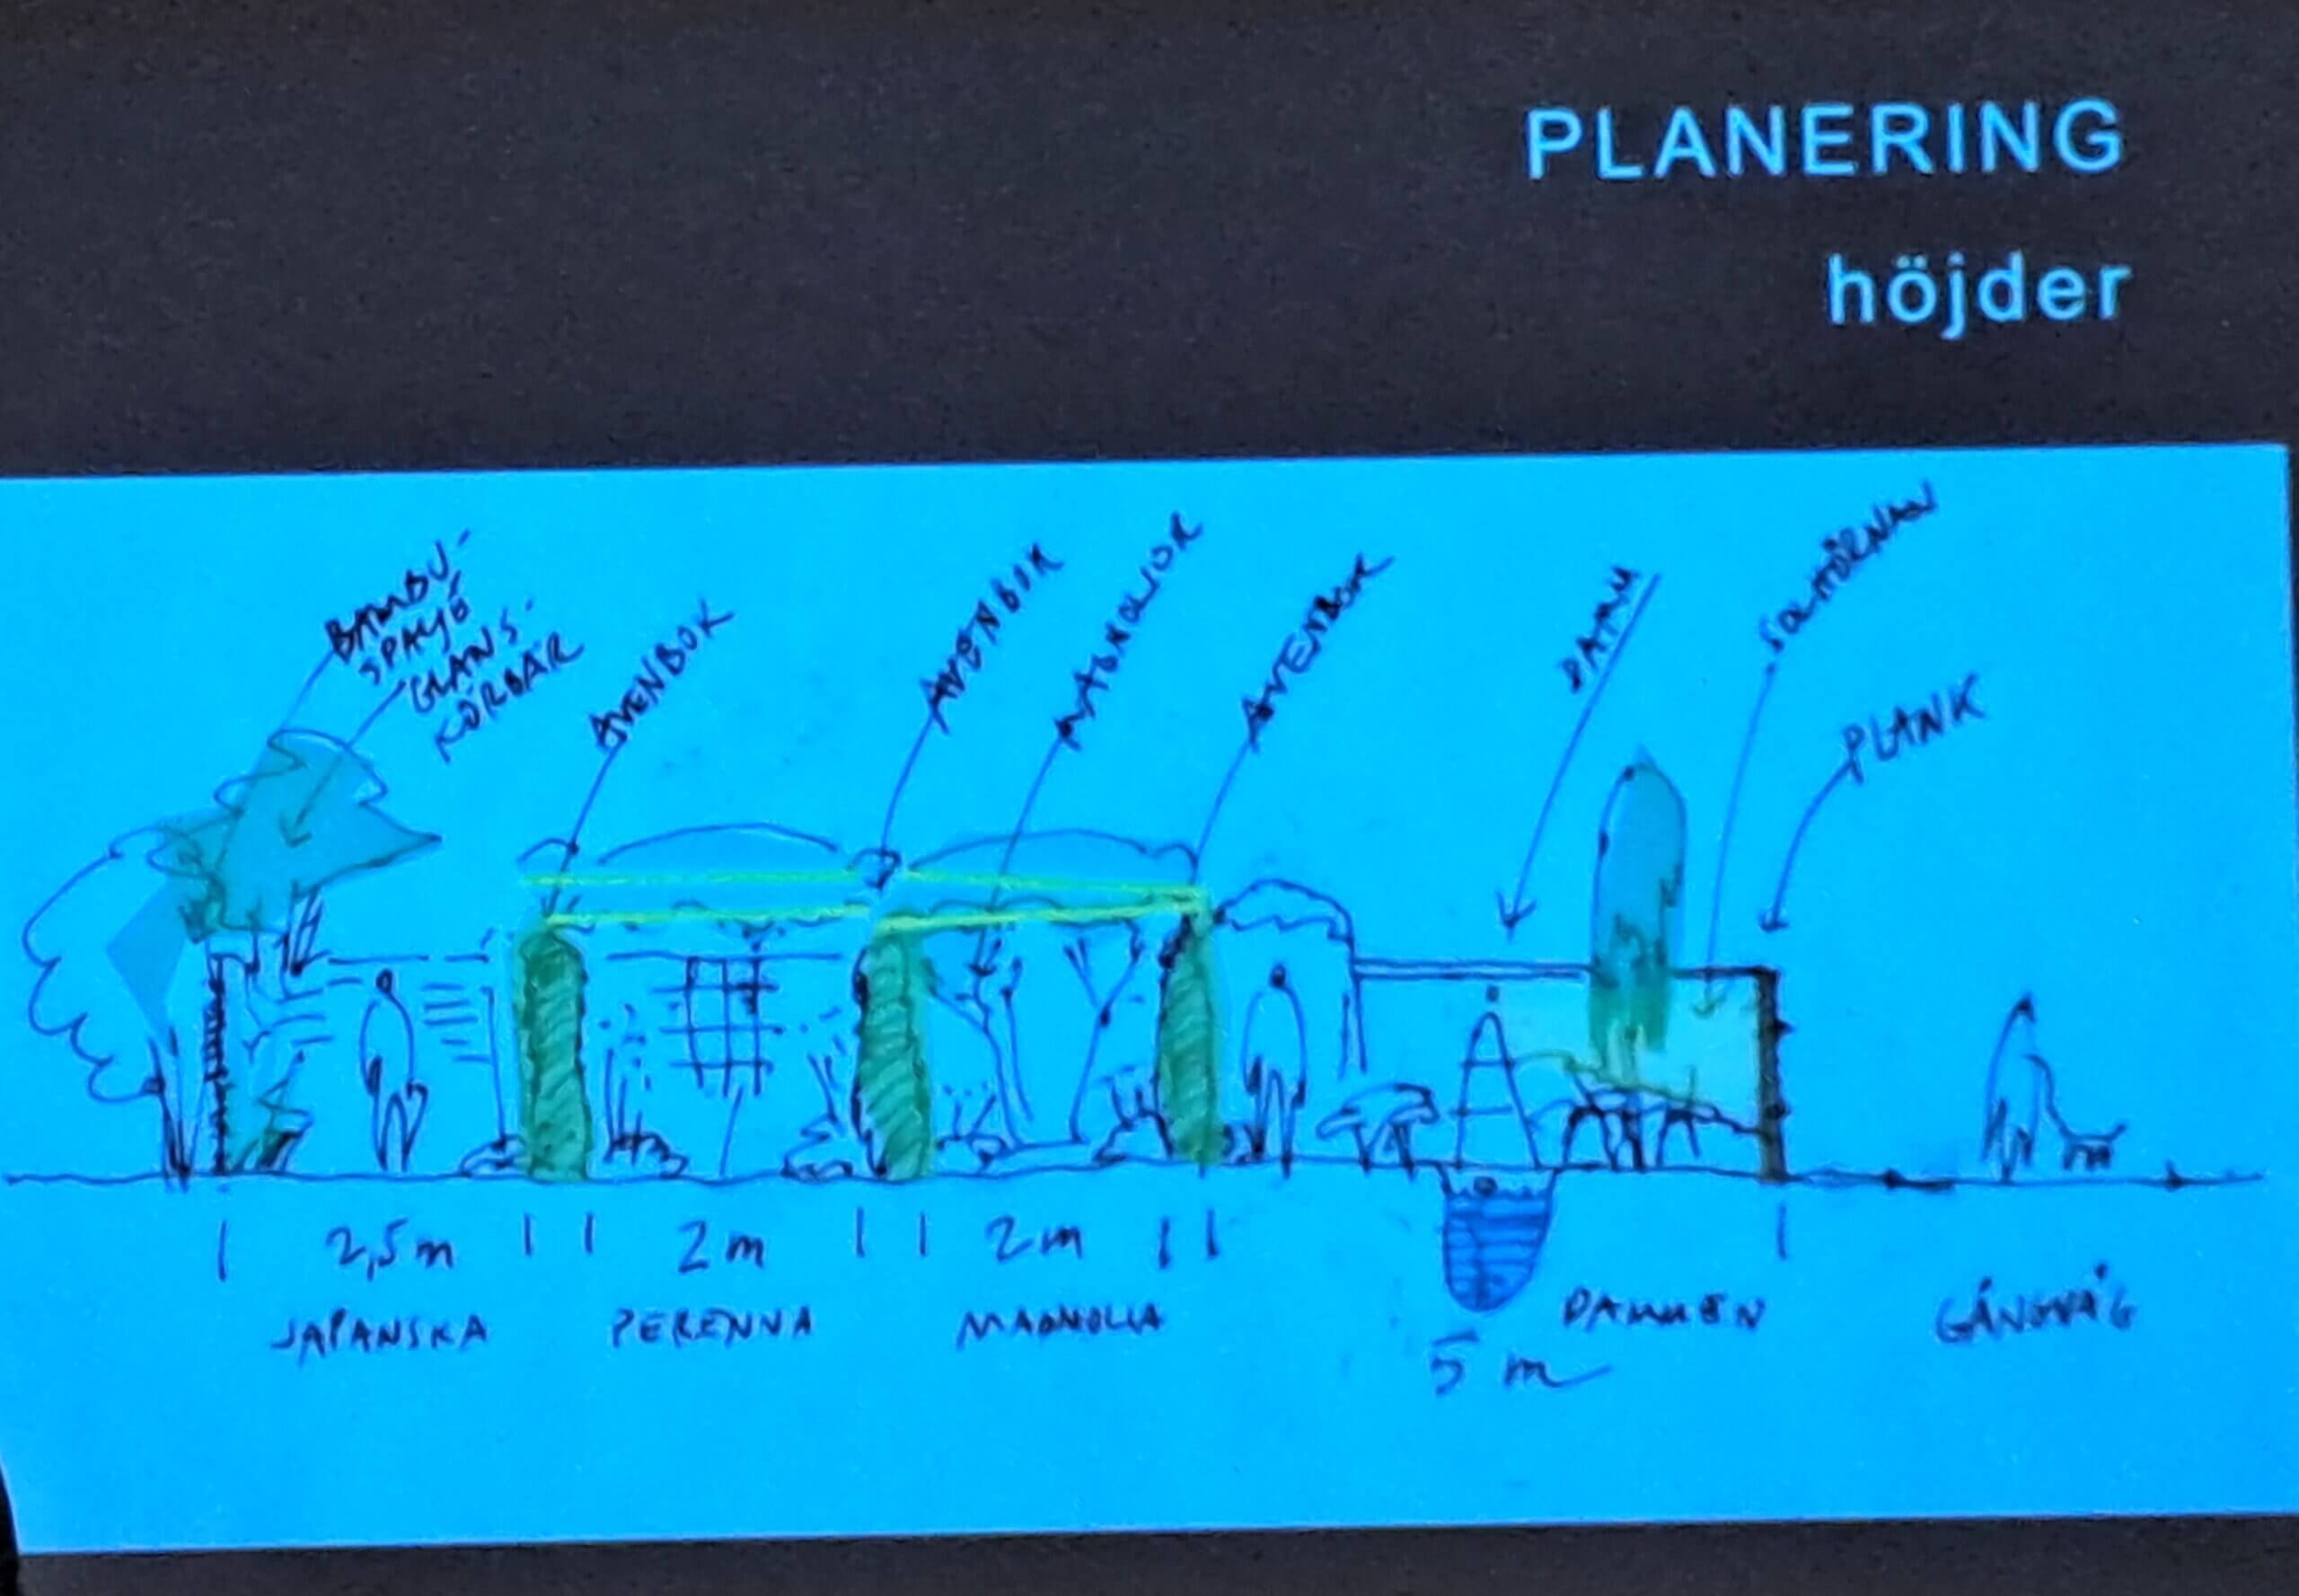 PLANERING
höjder
BAMBU-
SPALJÉ
GLANS-
KÖRBÄR
AVENBOK
AVENBOK
MAGNOLIOR
AVENBOK
DAMM
SOLHÖRNAN
PLANK
2,5m
2m
2m
JAPANSKA
PERENNA
MAGNOLIA
DAMMEN
GÅNGVÄG
5 m